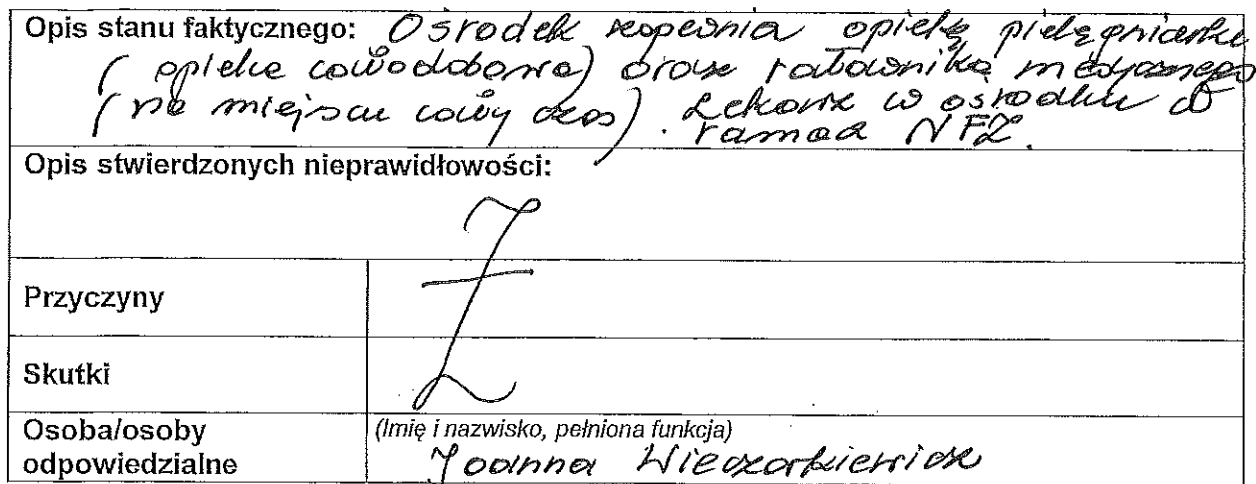 Opis stanu faktycznego: Ośrodek zapewnia opiekę pielęgniarki
(opieka całodobowa) oraz ratownika medycznego
(na miejscu cały czas). Lekarz w ośrodku w
ramach NFZ.
Opis stwierdzonych nieprawidłowości:
Przyczyny
Skutki
Osoba/osoby odpowiedzialne
(Imię i nazwisko, pełniona funkcja)
Joanna Wieczorkiewicz